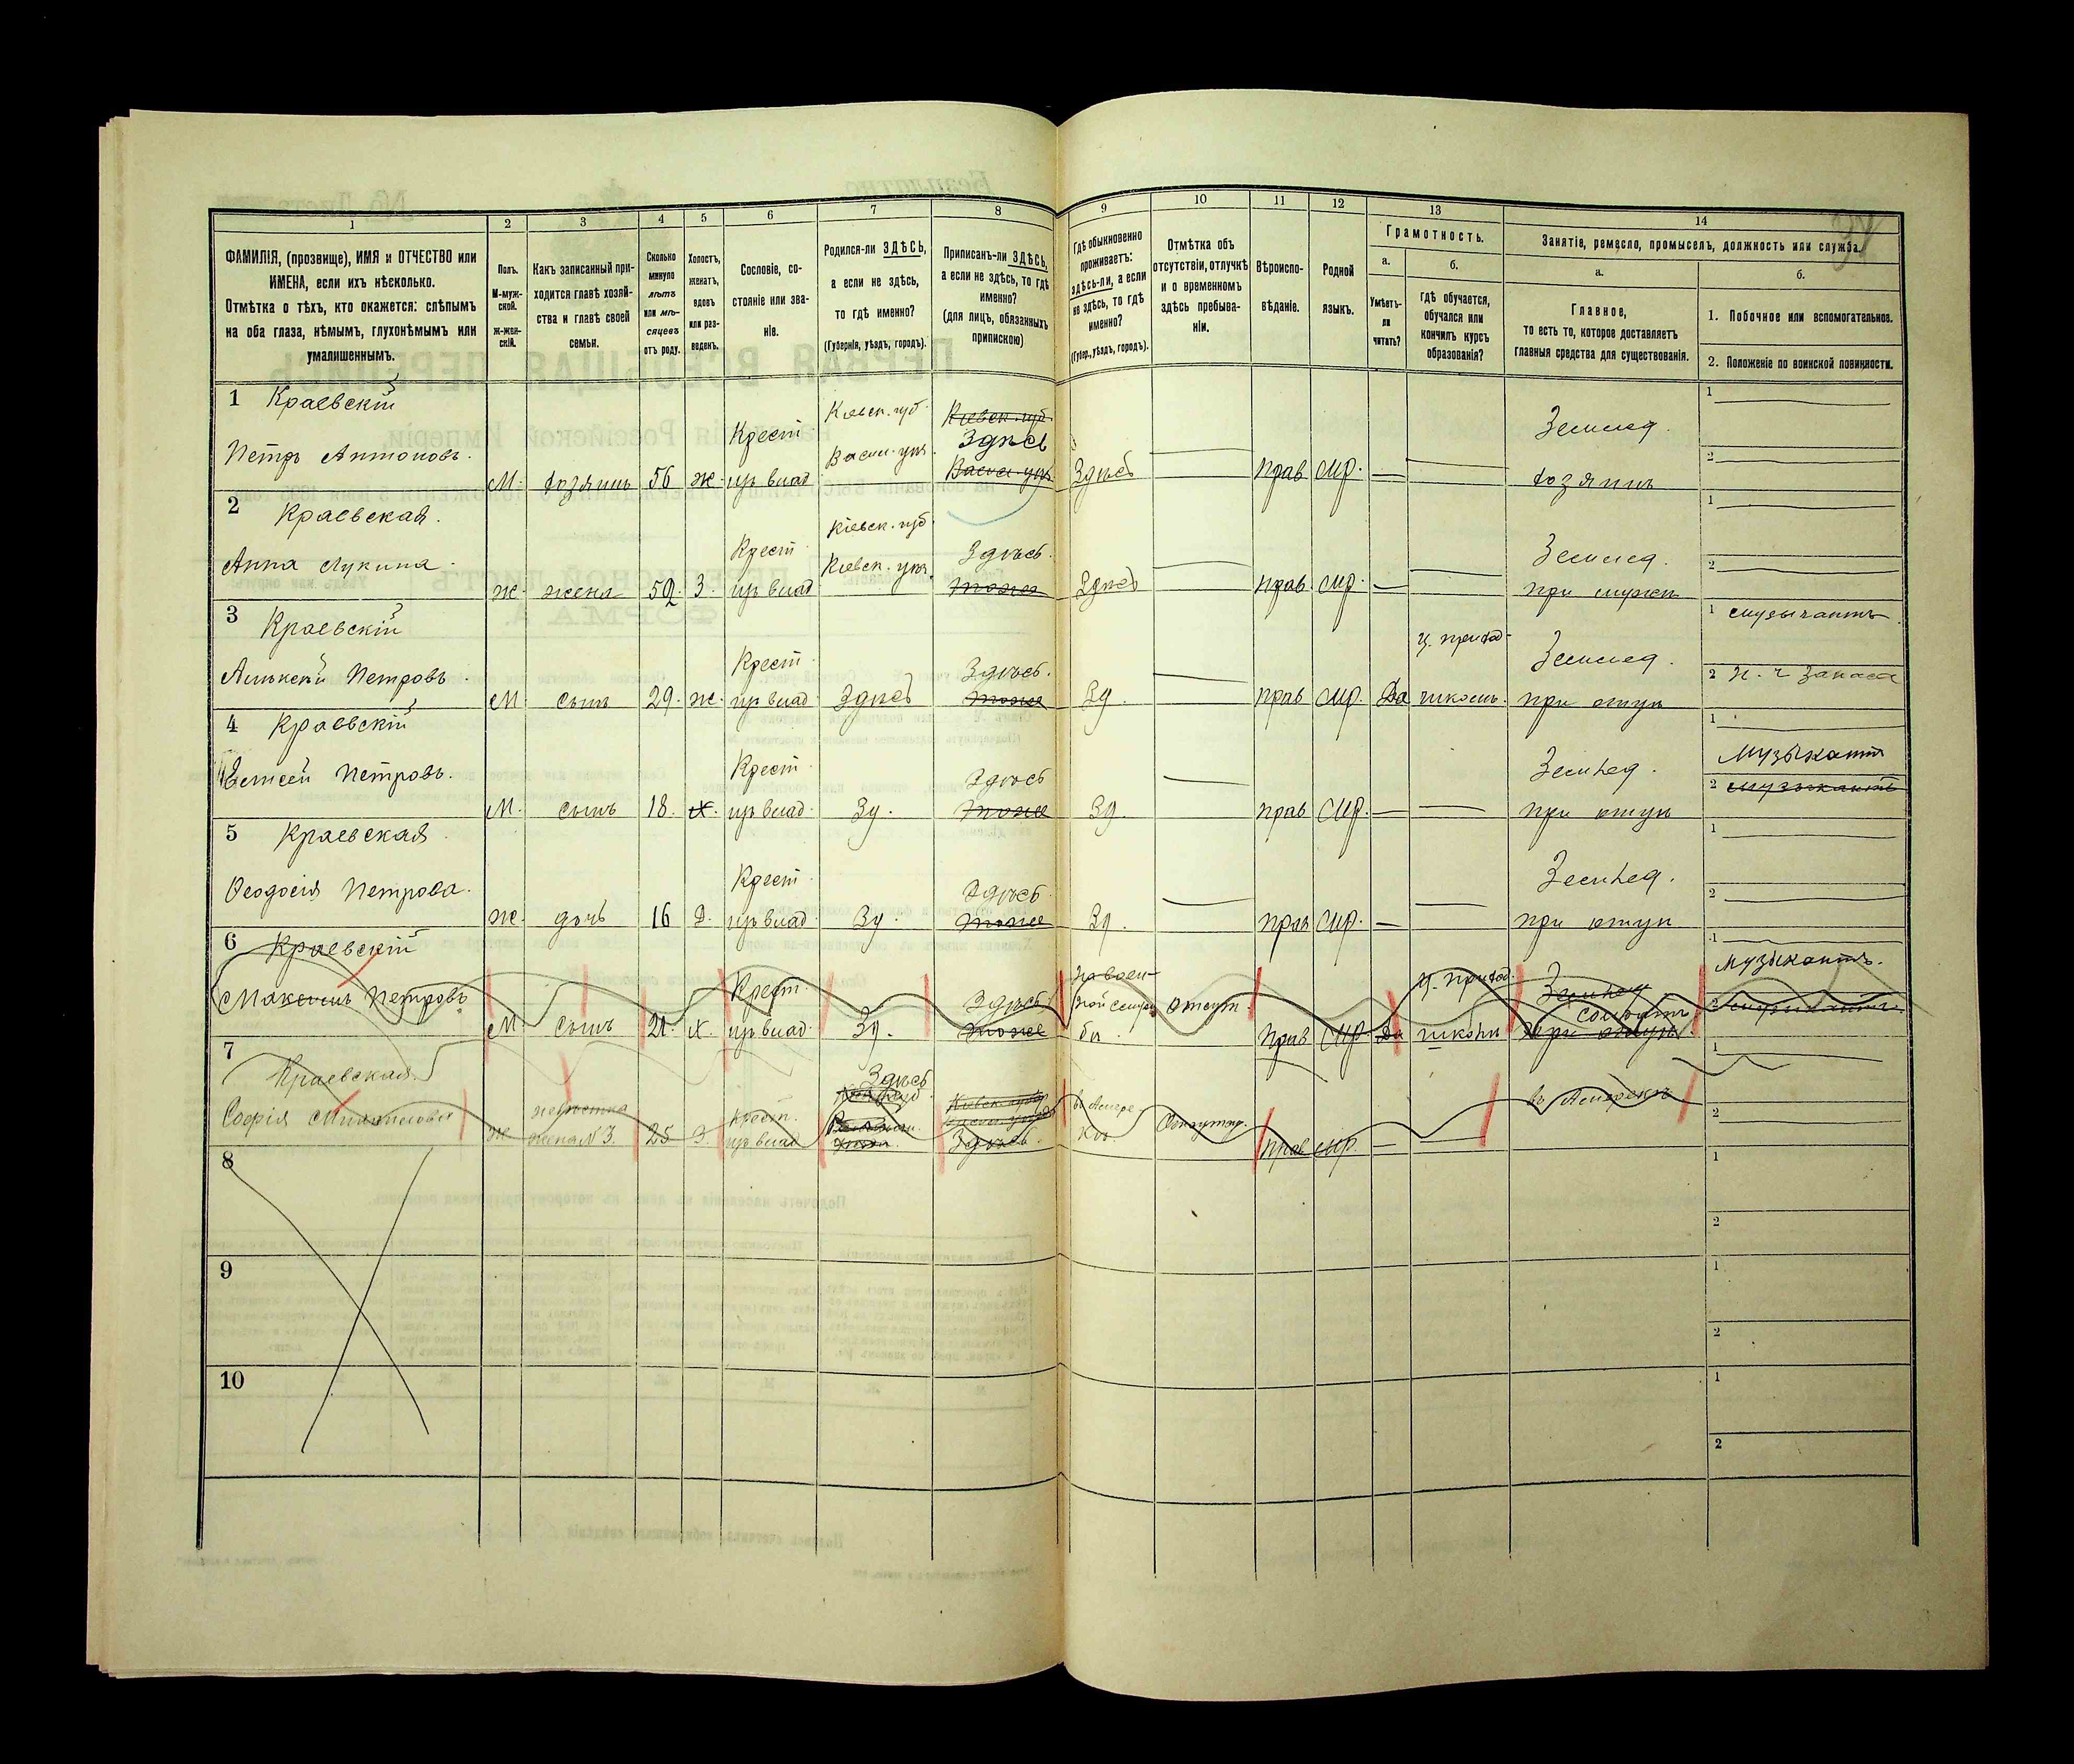 1
2
3
4
5
6
7
8
9
10
11
12
13
14
ФАМИЛІЯ, (прозвище), ИМЯ и ОТЧЕСТВО или
ИМЕНА, если ихъ нѣсколько.
Отмѣтка о тѣхъ, кто окажется: слѣпымъ
на оба глаза, нѣмымъ, глухонѣмымъ или
умалишеннымъ.
Полъ.
М-муж-
ской.
ж-жен-
скій.
Какъ записанный при-
ходится главѣ хозяй-
ства и главѣ своей
семьи.
Сколько
минуло
лѣтъ
или мѣ-
сяцевъ
отъ роду.
Холостъ,
женатъ,
вдовъ
или раз-
веденъ.
Сословіе, со-
стояніе или зва-
ніе.
Родился-ли ЗДѢСЬ,
а если не здѣсь,
то гдѣ именно?
(Губернія, уѣздъ, городъ).
Приписанъ-ли ЗДѢСЬ,
а если не здѣсь, то гдѣ
именно?
(для лицъ, обязанныхъ
припискою)
Гдѣ обыкновенно
проживаетъ:
здѣсь-ли, а если
не здѣсь, то гдѣ
именно?
(Губер., уѣздъ, городъ).
Отмѣтка объ
отсутствіи, отлучкѣ
и о временномъ
здѣсь пребыва-
ніи.
Вѣроиспо-
вѣданіе.
Родной
языкъ.
Грамотность.
а.
Умѣетъ-
ли
читать?
б.
Гдѣ обучается,
обучался или
кончилъ курсъ
образованія?
Занятіе, ремесло, промыселъ, должность или служба.
а.
Главное,
то есть то, которое доставляетъ
главныя средства для существованія.
б.
1. Побочное или вспомогательное.
2. Положеніе по воинской повинности.
1 Краевскій
Петръ Антоновъ.
М. хозяинъ 56 ж.
Крест
изъ влад
Кіевск. губ.
Васил. уѣз.
Кіевск. губ.
Здѣсь
Васил. уѣз.
Здѣсь
прав мр. —
Землед.
хозяинъ
1
2
2 Краевская.
Анна Лукина.
ж. жена 52. З.
Крест
изъ влад
Кіевск. губ.
Кіевск. уѣз.
Здѣсь.
тоже
Здѣсь
прав. мр. —
Землед.
при мужѣ
1
2
3 Краевскій
Алексѣй Петровъ.
М. сынъ 29. ж.
Крест.
изъ влад.
Здѣсь
Здѣсь.
тоже
Зд.
прав мр. Да
ц. приход-
школѣ.
Землед.
при отцѣ
1 музыкантъ
2 н. ч запаса
4 Краевскій
Елисей Петровъ.
М. сынъ 18. х.
Крест.
изъ влад.
Зд.
Здѣсь
тоже
Зд.
прав мр. —
Землед.
при отцѣ
1
музыкант
2 музыкантъ
5 Краевская
Ѳеодосія Петрова.
ж. дочь 16 д.
Крест.
изъ влад.
Зд.
Здѣсь.
тоже
Зд.
прав мр. —
Землед.
при отцѣ
1
2
6 Краевскій
Максимъ Петровъ
М. сынъ 21. х.
Крест.
изъ влад.
Зд.
Здѣсь
тоже
На воен-
ной служ
бѣ.
Отсут
прав мр. Да
ц. приход.
школѣ
Землед
солдатъ
при отцѣ
1
музыкантъ.
2 музыкантъ.
7
Краевская
Софія
ж
невѣстка
жена N 3. 25 З.
крест.
изъ влад
Здѣсь
Здѣсь.
въ Амере-
кѣ.
Отсутст.
прав мр. —
въ Америкѣ
1
2
8
1
2
9
1
2
10
1
2